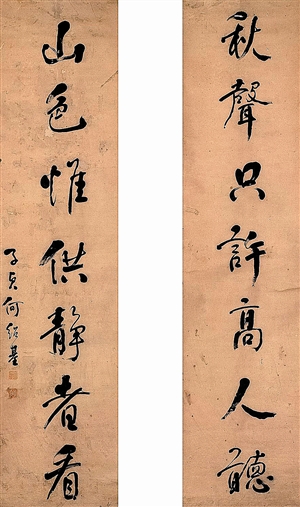 秋聲只許高人聽
山色惟供靜者看
子貞何紹基